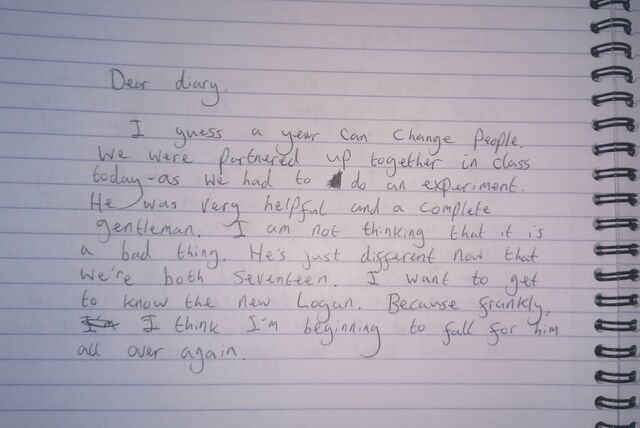 Dear diary,
I guess a year can change people.
We were partnered up together in class
today-as we had to do an experiment.
He was very helpful and a complete
gentleman. I am not thinking that it is
a bad thing. He's just different now that
we're both seventeen. I want to get
to know the new Logan. Because frankly,
I'm I think I'm beginning to fall for him
all over again.